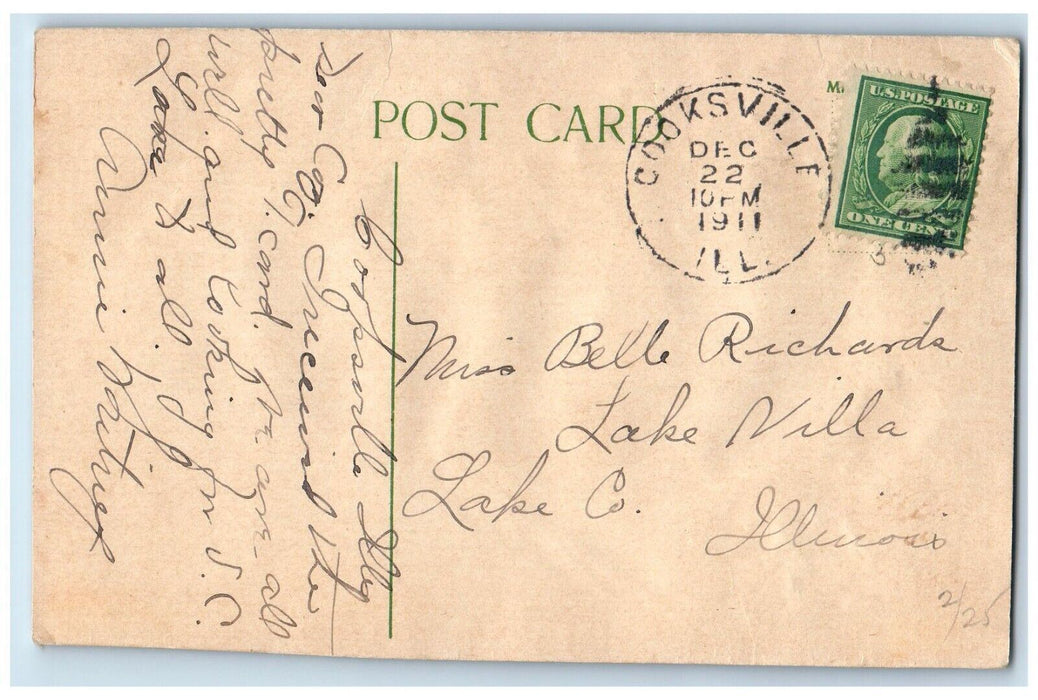 POST CARD
COOKSVILLE
DEC
22
10 PM
1911
ILL.
U.S. POSTAGE
ONE CENT
Miss Belle Richards
Lake Villa
Lake Co.
Illinois
2/25
Cooksville Ills
Received the
pretty card. We are all
well and looking for S.C.
to all.